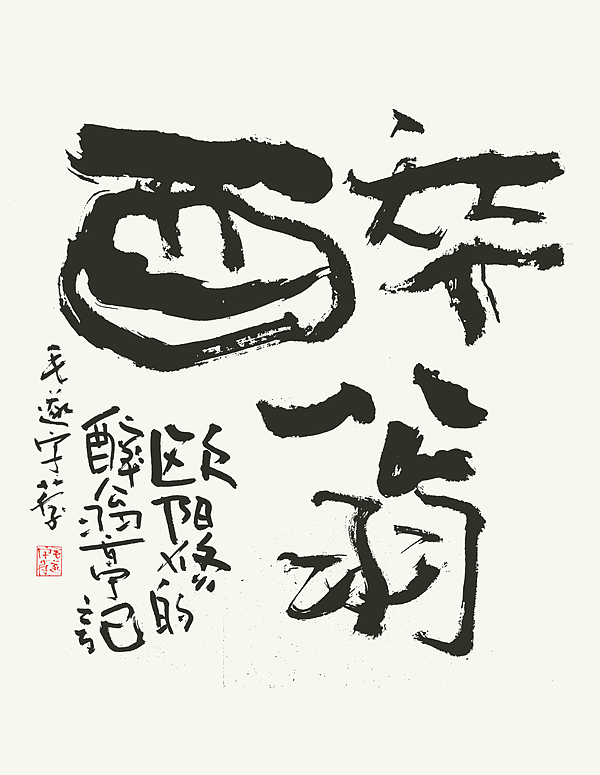 醉翁
欧阳修的
醉翁亭記